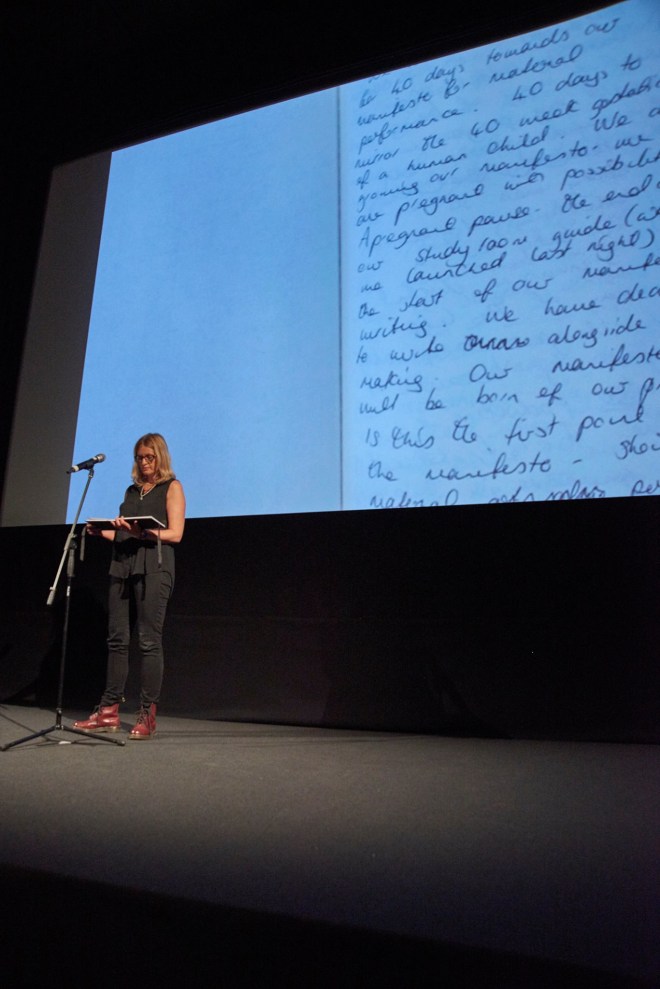 be 40 days towards our
manifesto for material
performance. 40 days to
mirror the 40 week gestation
of a human child. We a
growing our manifesto. we
are pregnant with possibilit
A pregnant pause. The end o
our study room guide (w
me launched last night)
the start of our manife
writing. We have dec
to write alongside
making. Our manifesto
will be born of our p
Is this the first point
the manifesto - shou
material per